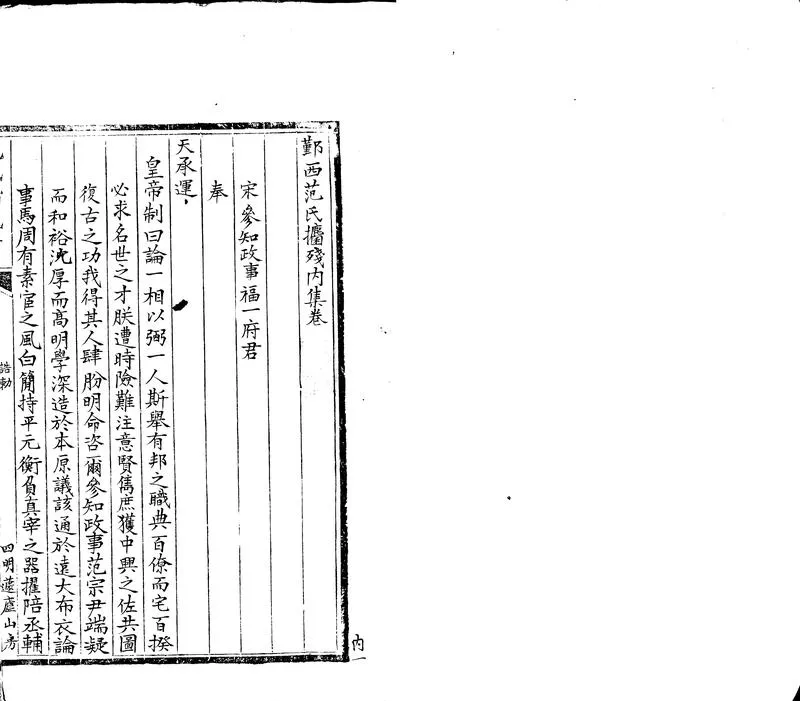 鄞西范氏攟殘內集卷
宋參知政事福一府君
奉
天承運
皇帝制曰論一相以弼一人斯舉有邦之職典百僚而宅百揆
必求名世之才朕遭時險難注意賢雋庶獲中興之佐共圖
復古之功我得其人肆朌明命咨爾參知政事范宗尹端凝
而和裕沈厚而高明學深造於本原議該通於遠大布衣論
事馬周有素宦之風白簡持平元衡負真宰之器擢陪丞輔
誥勅
四明蘧廬山房
內一